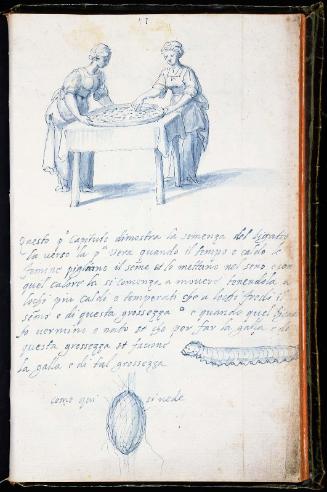 Questo p° Capitulo dimostra la semenza del bigatto
la verso la p° Vera quando il tempo e caldo le
femine pigliano il seme et lo mettano nel seno e con
quel calore la si comenza a movere tenendola a
lochi piu caldi e temperati che a lochi fredi il
seme e di questa grossezza ° e quando quel
to vermino e nato et che por far la galla e di
questa grossezza et facione
la galla e di tal grossezza
como qui si vede